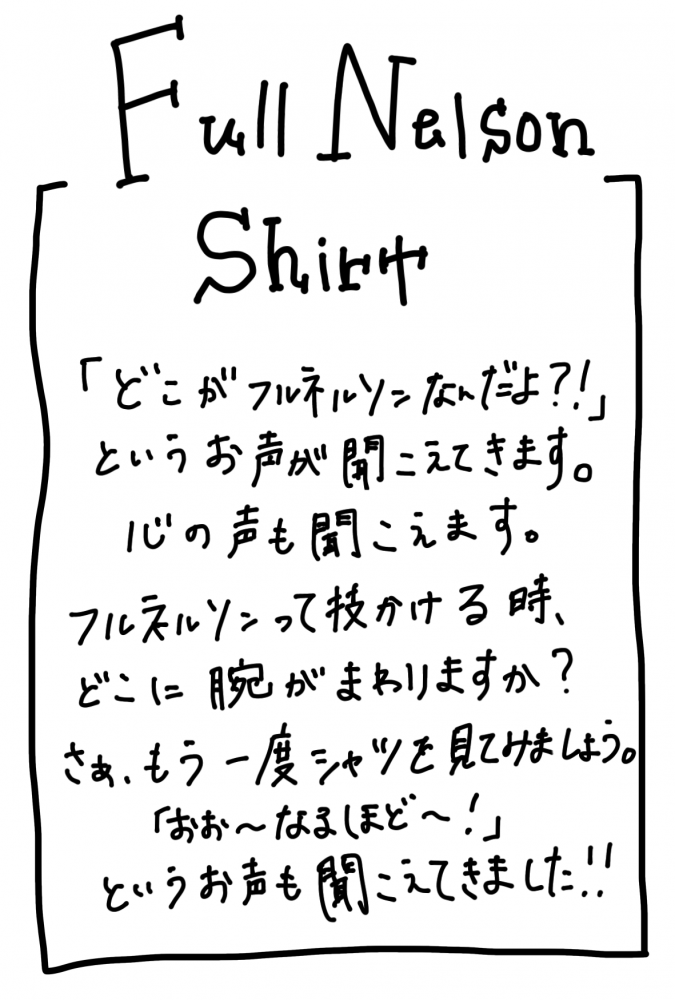 Full Nelson
Shirt
「どこがフルネルソンなんだよ?!」
というお声が聞こえてきます。
心の声も聞こえます。
フルネルソンって技かける時、
どこに腕がまわりますか?
さぁ、もう一度シャツを見てみましょう。
「おお〜なるほど〜!」
というお声も聞こえてきました!!